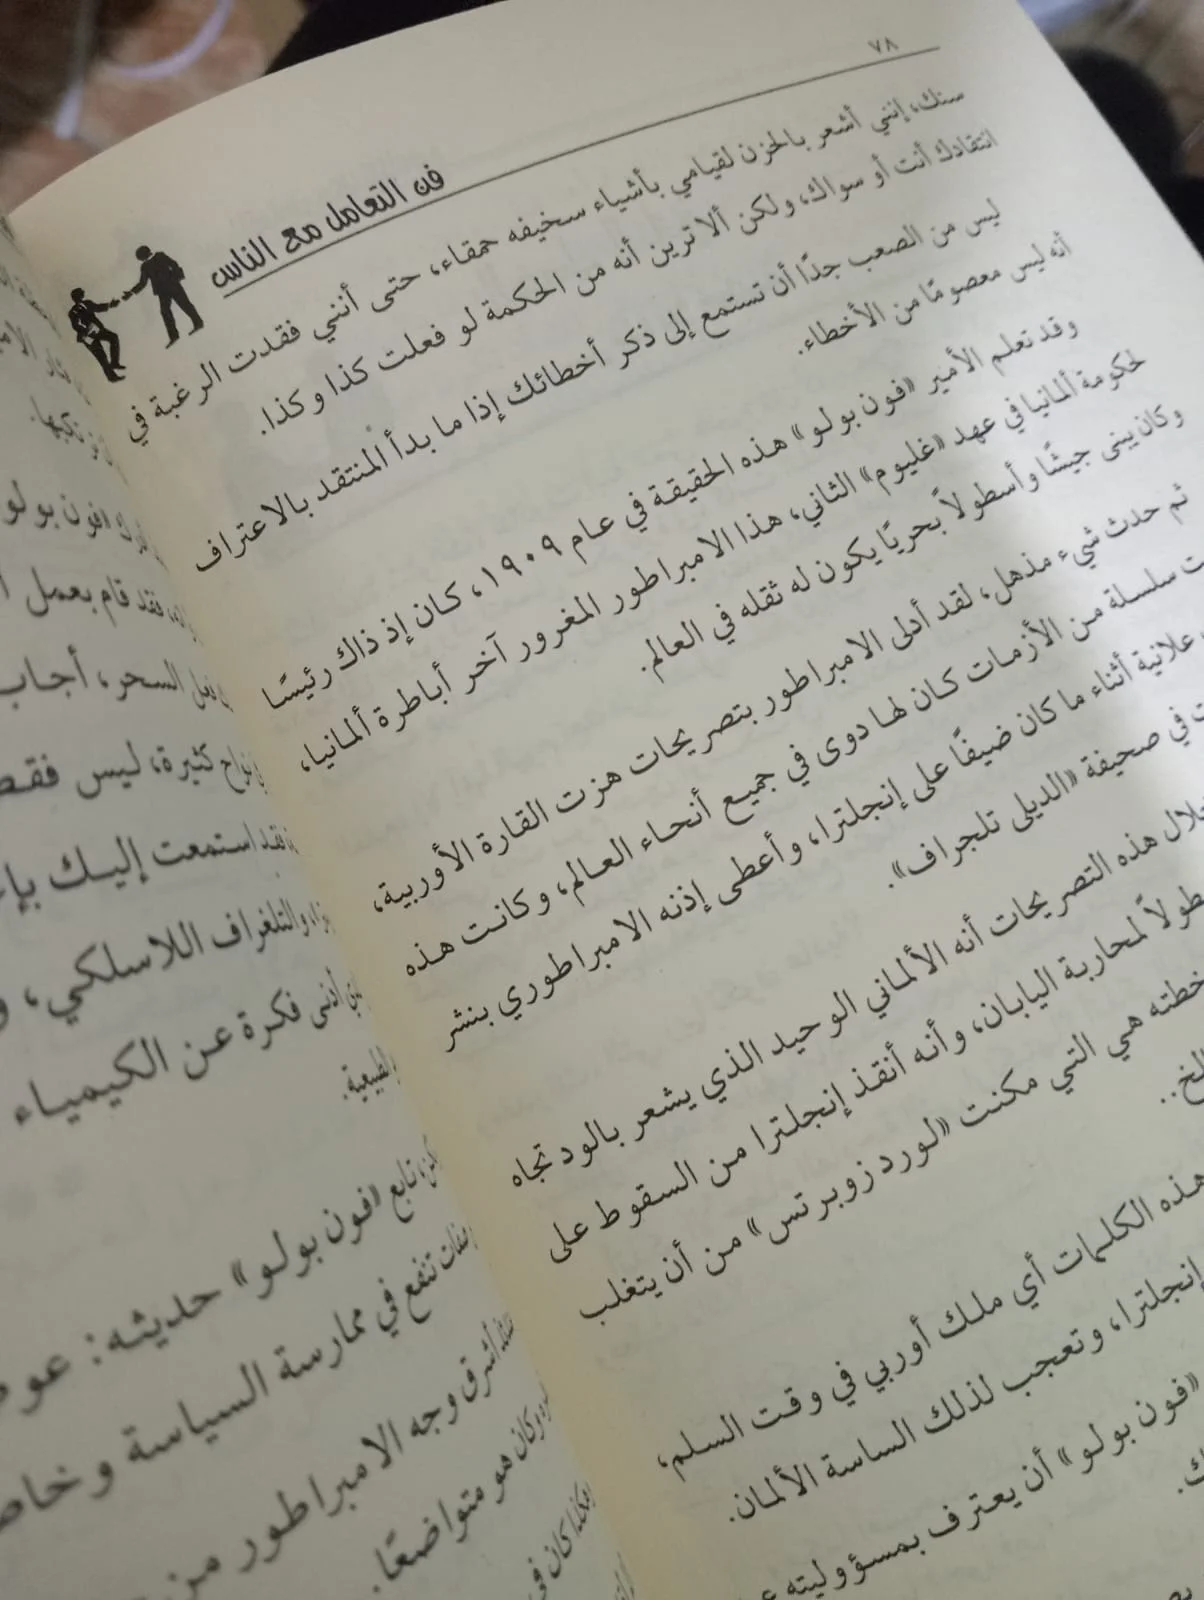 ٧٨
فن التعامل مع الناس
سنك، إنني أشعر بالحزن لقيامي بأشياء سخيفه حمقاء، حتى أنني فقدت الرغبة في
انتقادك أنت أو سواك، ولكن ألا ترين أنه من الحكمة لو فعلت كذا وكذا.
ليس من الصعب جدًا أن تستمع إلى ذكر أخطائك إذا ما بدأ المنتقد بالاعتراف
أنه ليس معصومًا من الأخطاء.
وقد تعلم الأمير «فون بولو» هذه الحقيقة في عام ١٩٠٩، كان إذ ذاك رئيسًا
لحكومة ألمانيا في عهد «غليوم» الثاني، هذا الامبراطور المغرور آخر أباطرة ألمانيا،
وكان يبنى جيشًا وأسطولاً بحريًا يكون له ثقله في العالم.
ثم حدث شيء مذهل، لقد أدلى الامبراطور بتصريحات هزت القارة الأوربية،
سلسلة من الأزمات كان لها دوى في جميع أنحاء العالم، وكانت هذه
علانية أثناء ما كان ضيفًا على إنجلترا، وأعطى إذنه الامبراطوري بنشر
في صحيفة «الديلى تلجراف».
هذه التصريحات أنه الألماني الوحيد الذي يشعر بالود تجاه
لمحاربة اليابان، وأنه أنقذ إنجلترا من السقوط على
خطته هي التي مكنت «لورد زوبرتس» من أن يتغلب
الخ..
هذه الكلمات أي ملك أوربي في وقت السلم،
إنجلترا، وتعجب لذلك الساسة الألمان.
«فون بولو» أن يعترف بمسؤوليته
«فون بولو
فقد قام بعمل
السحر، أجاب
نواح كثيرة، ليس فقط
استمعت إليك
والتلغراف اللاسلكي،
أدنى فكرة عن الكيمياء
تابع «فون بولو» حديثه:
تنفع في ممارسة السياسة
أشرق وجه الامبراطور من
وكان هو متواضعًا.
كان في